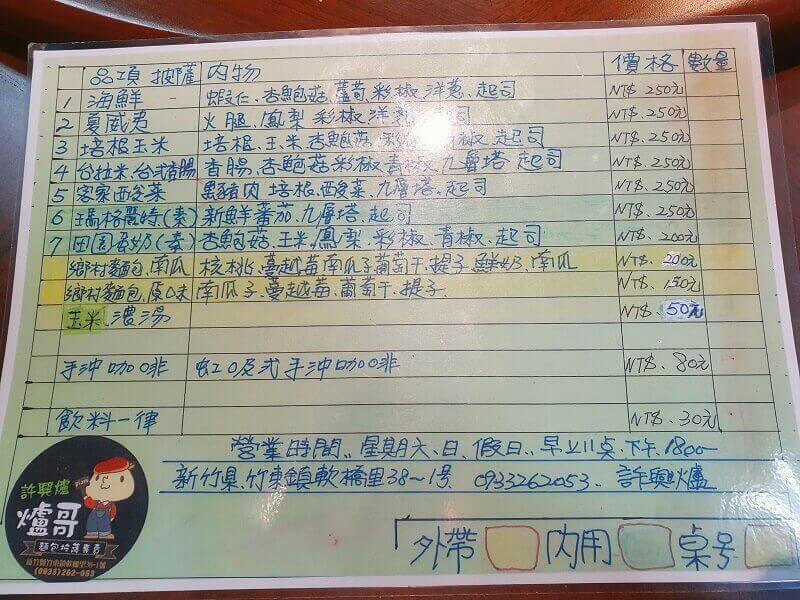 品項 披薩 內物 價格 數量
1 海鮮 蝦仁、杏鮑菇、蘆荀、彩椒、洋蔥、起司 NT$ 250元
2 夏威夷 火腿、鳳梨 彩椒 洋 起司 NT$、250元
3 培根玉米 培根、玉米、杏鮑菇、彩 椒、起司 NT$、250元
4 台拉米、台式香腸 香腸、杏鮑菇 彩椒 青椒、九層塔、起司 NT$、250元
5 客家酸菜 黑豬肉 培根、酸菜、九層塔、起司 NT$、250元
6 瑪格麗特(素) 新鮮蕃茄、九層塔、起司 NT$、250元
7 田園 (素) 杏鮑菇、玉米、鳳梨、彩椒、青椒、起司 NT$、200元
鄉村麵包、南瓜 核桃、蔓越莓 南瓜子 葡萄干、提子 鮮奶、南瓜 NT$、200元
鄉村麵包、原味 南瓜子、蔓越莓、葡萄干、提子 NT$、150元
玉米濃湯 NT$、50元
手沖咖啡 虹吸式手沖咖啡 NT$、80元
飲料一律 NT$、30元
營業時間、星期六、日、假日、早上11点、下午1800
新竹県、竹東鎮軟橋里38~1号 0933262053、許興爐
許興爐
爐哥
麵包披薩專賣
新竹縣竹東鎮軟橋里38-1號
(0933)262-053
外帶 內用 桌号